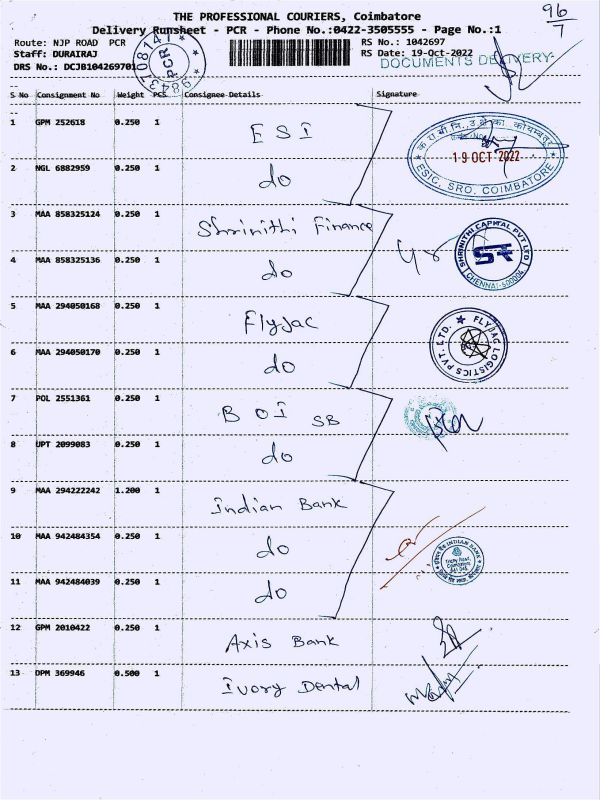 THE PROFESSIONAL COURIERS, Coimbatore
96
7
Delivery Runsheet - PCR - Phone No.:0422-3505555 - Page No.:1
Route: NJP ROAD PCR
RS No.: 1042697
Staff: DURAIRAJ
RS Date: 19-Oct-2022
DRS No.: DCJB104269701
PCR
9843708147
DOCUMENTS DELIVERY
S No Consignment No Weight PCS Consignee Details Signature
1 GPM 252618 0.250 1 ESI
19 OCT 2022
ESIC, SRO, COIMBATORE
2 NGL 6882959 0.250 1 do
3 MAA 858325124 0.250 1 Shrinithi Finance
SHRINITHI CAPITAL PVT LTD
SR
CHENNAI-500004
4 MAA 858325136 0.250 1 do
5 MAA 294050168 0.250 1 Flyjac
FLYJAC LOGISTICS PVT. LTD.
6 MAA 294050170 0.250 1 do
7 POL 2551361 0.250 1 BOI SB
8 UPT 2099083 0.250 1 do
9 MAA 294222242 1.200 1 Indian Bank
10 MAA 942484354 0.250 1 do
INDIAN BANK
11 MAA 942484039 0.250 1 do
12 GPM 2010422 0.250 1 Axis Bank
13 DPM 369946 0.500 1 Ivory Dental